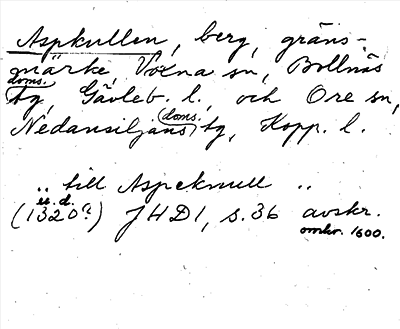 Aspkullen, berg, gräns-
märke, Voxna sn, Bollnäs
doms.
tg, Gävleb. l., och Ore sn,
Nedansiljans (doms.) tg, Kopp. l.
.. till Aspeknull ..
u. d.
(1320?) JHD1, s. 36 avskr.
omkr. 1600.